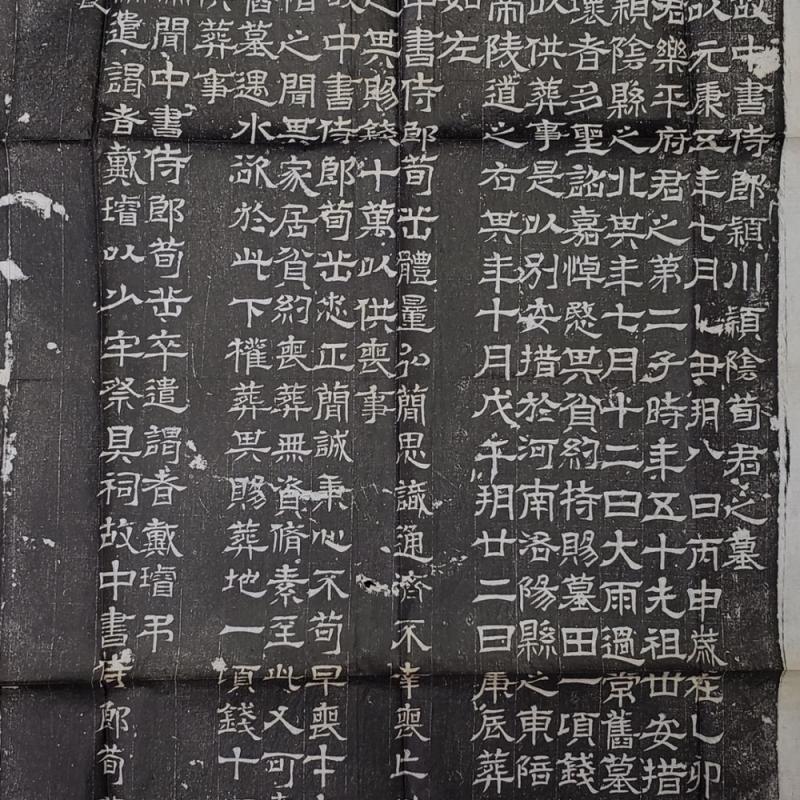 故中書侍郎潁川潁陰荀君之墓
以元康五年七月乙丑朔八日丙申歲在乙卯
君樂平府君之第二子時年五十先祖世安措
潁陰縣之北其年七月十二日大雨過常舊墓
壞者多聖詔嘉悼愍其貧約特賜墓田一頃錢
以供葬事是以別安措於河南洛陽縣之東陪
帝陵道之右其年十月戊午朔廿二日庚辰葬
如左
中書侍郎荀岳體量弘簡思識通濟不幸喪亡
之其賜錢十萬以供喪事
故中書侍郎荀岳忠正簡誠秉心不苟早喪才
惜之聞其家居貧約喪葬無資脩素至此又可
舊墓遇水欲於此下權葬其賜葬地一頃錢十
供葬事
聞中書侍郎荀岳卒遣謁者戴璿弔
遣謁者戴璿以少牢祭具祠故中書侍郎荀